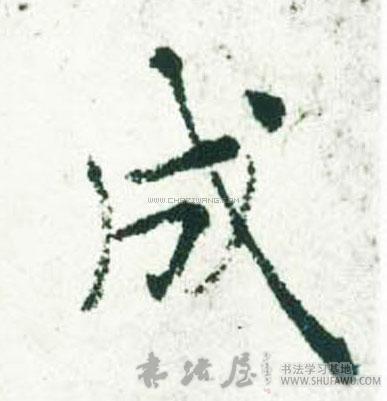 成
WWW.CHAZIWANG.COM
书法屋
书法学习基地
WWW.SHUFAWU.COM